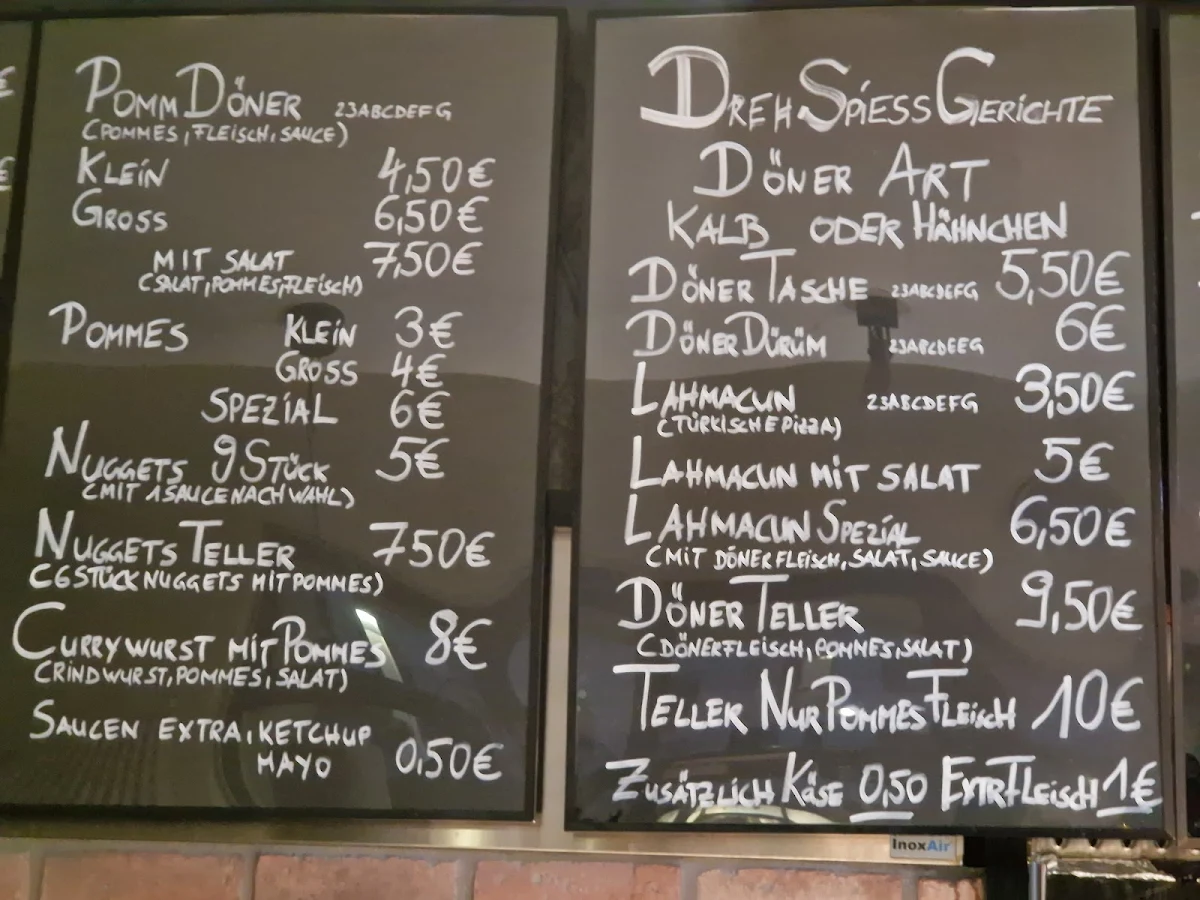 PommDöner 23ABCDEFG
(Pommes, Fleisch, Sauce)
Klein 4,50€
Gross 6,50€
mit Salat 7,50€
(Salat, Pommes, Fleisch)
Pommes Klein 3€
Gross 4€
Spezial 6€
Nuggets 9 Stück 5€
(mit 1 Sauce nach Wahl)
Nuggets Teller 750€
(6 Stück Nuggets mit Pommes)
Currywurst mit Pommes 8€
(Rindwurst, Pommes, Salat)
Saucen extra, Ketchup
Mayo 0,50€
DrehSpiessGerichte
Döner Art
Kalb oder Hähnchen
Döner Tasche 23ABCDEFG 5,50€
Döner Dürüm 23ABCDEEG 6€
Lahmacun 23ABCDEFG 3,50€
(Türkische Pizza)
Lahmacun mit Salat 5€
Lahmacun Spezial 6,50€
(mit Dönerfleisch, Salat, Sauce)
Döner Teller 9,50€
(Dönerfleisch, Pommes, Salat)
Teller Nur Pommes Fleisch 10€
Zusätzlich Käse 0,50 ExtrFleisch 1€
InoxAir